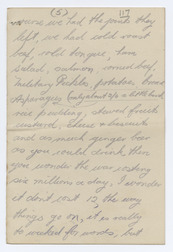 (5) 117
course we had the guests they
left, we had cold roast
beef, cold tongue, ham
salad, salmon, corned beef,
military Pickles, potatoes, 
Asparagus (only about a little tin)
rice pudding, stewed fruit
custard, cheese & biscuits
and as much ginger beer
as you could drink, then
you wonder the war costing
six millions a day, I wonder
it dont cost 12, the way
things go on, it is really
to wicked for words, but